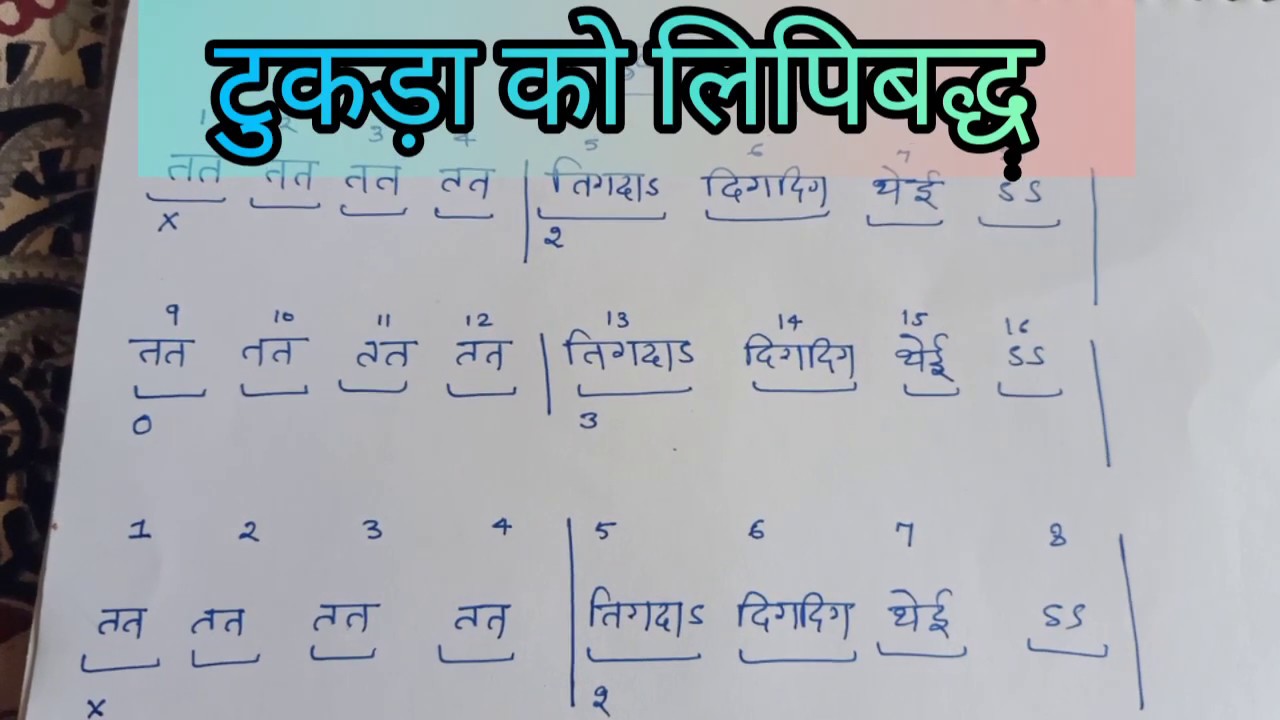 टुकड़ा को लिपिबद्ध
1 2 3 4 5 6 7
तत तत तत तत | तिगदाऽ दिगदिग थेई ऽऽ |
x २
9 10 11 12 13 14 15 16
तत तत तत तत | तिगदाऽ दिगदिग थेई ऽऽ |
0 3
1 2 3 4 5 6 7 8
तत तत तत तत | तिगदाऽ दिगदिग थेई ऽऽ |
x २